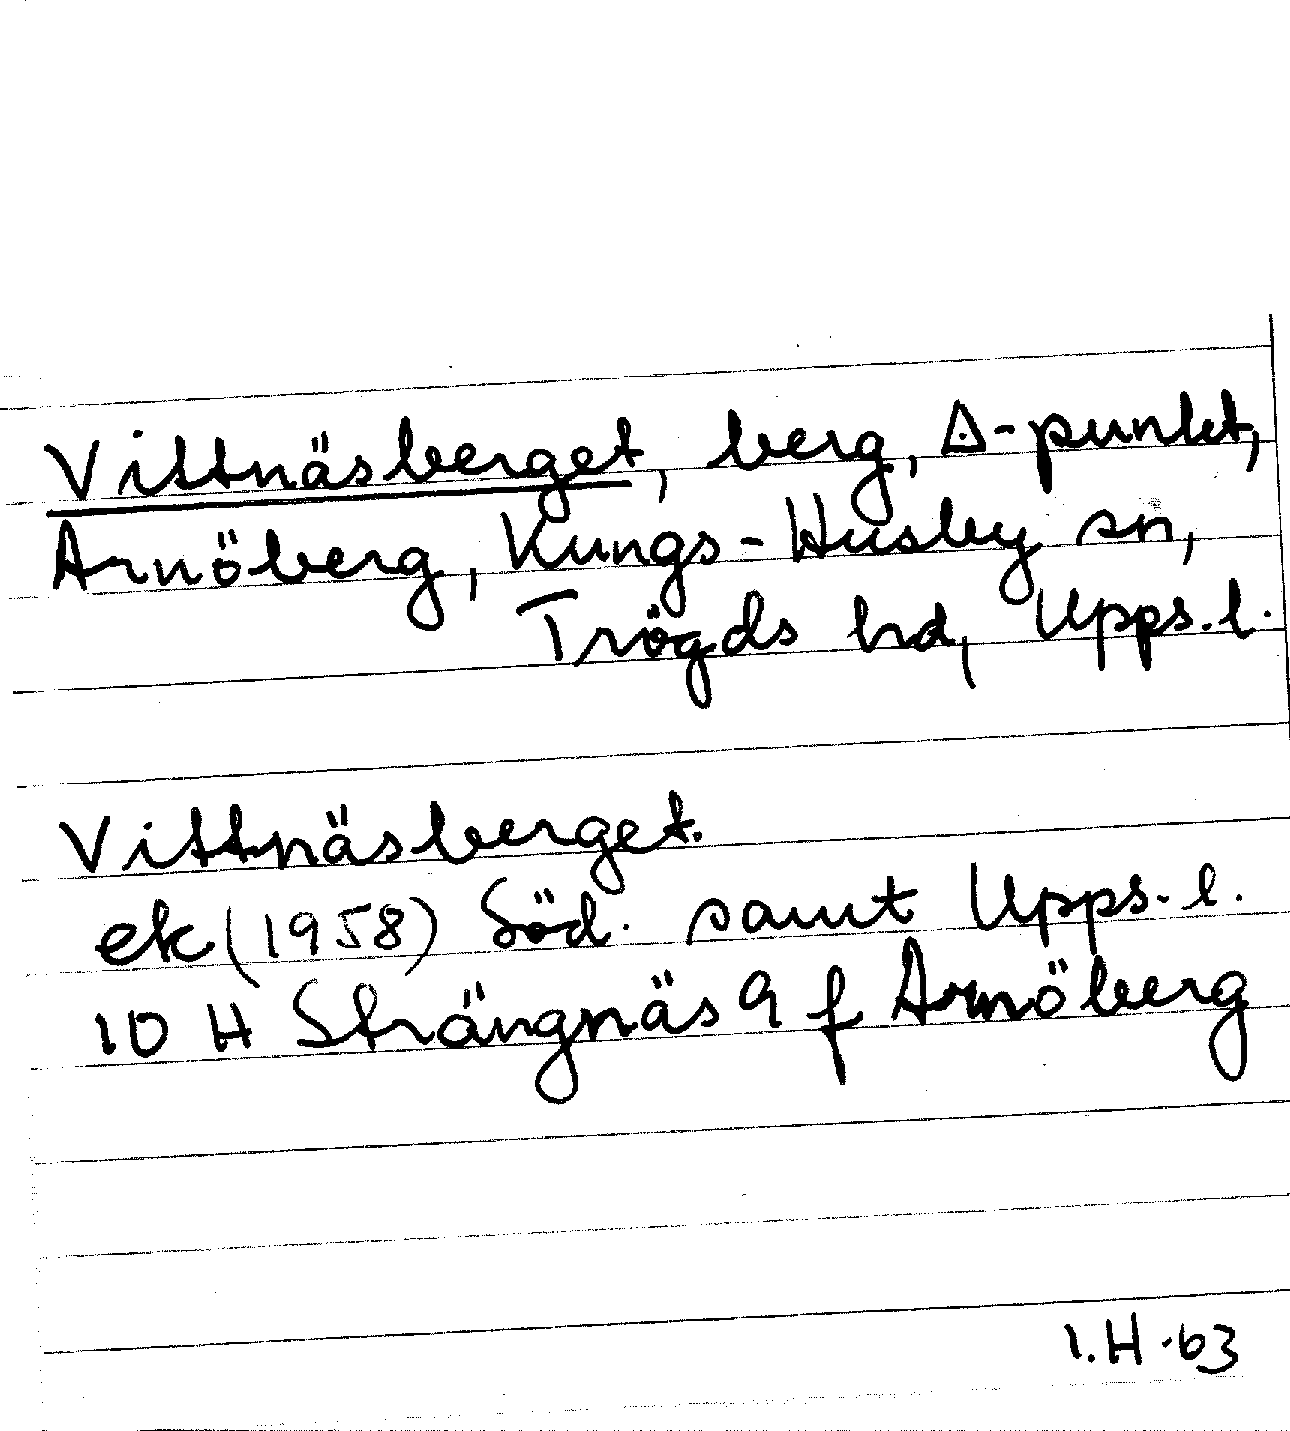 Vittnäsberget, berg, ∆-punkt,
Arnöberg, Kungs-Husby sn,
Trögds hd, Upps.l.
Vittnäsberget.
ek (1958) Söd. samt Upps.l.
10 H Strängnäs 9 f Arnöberg
I.H.63